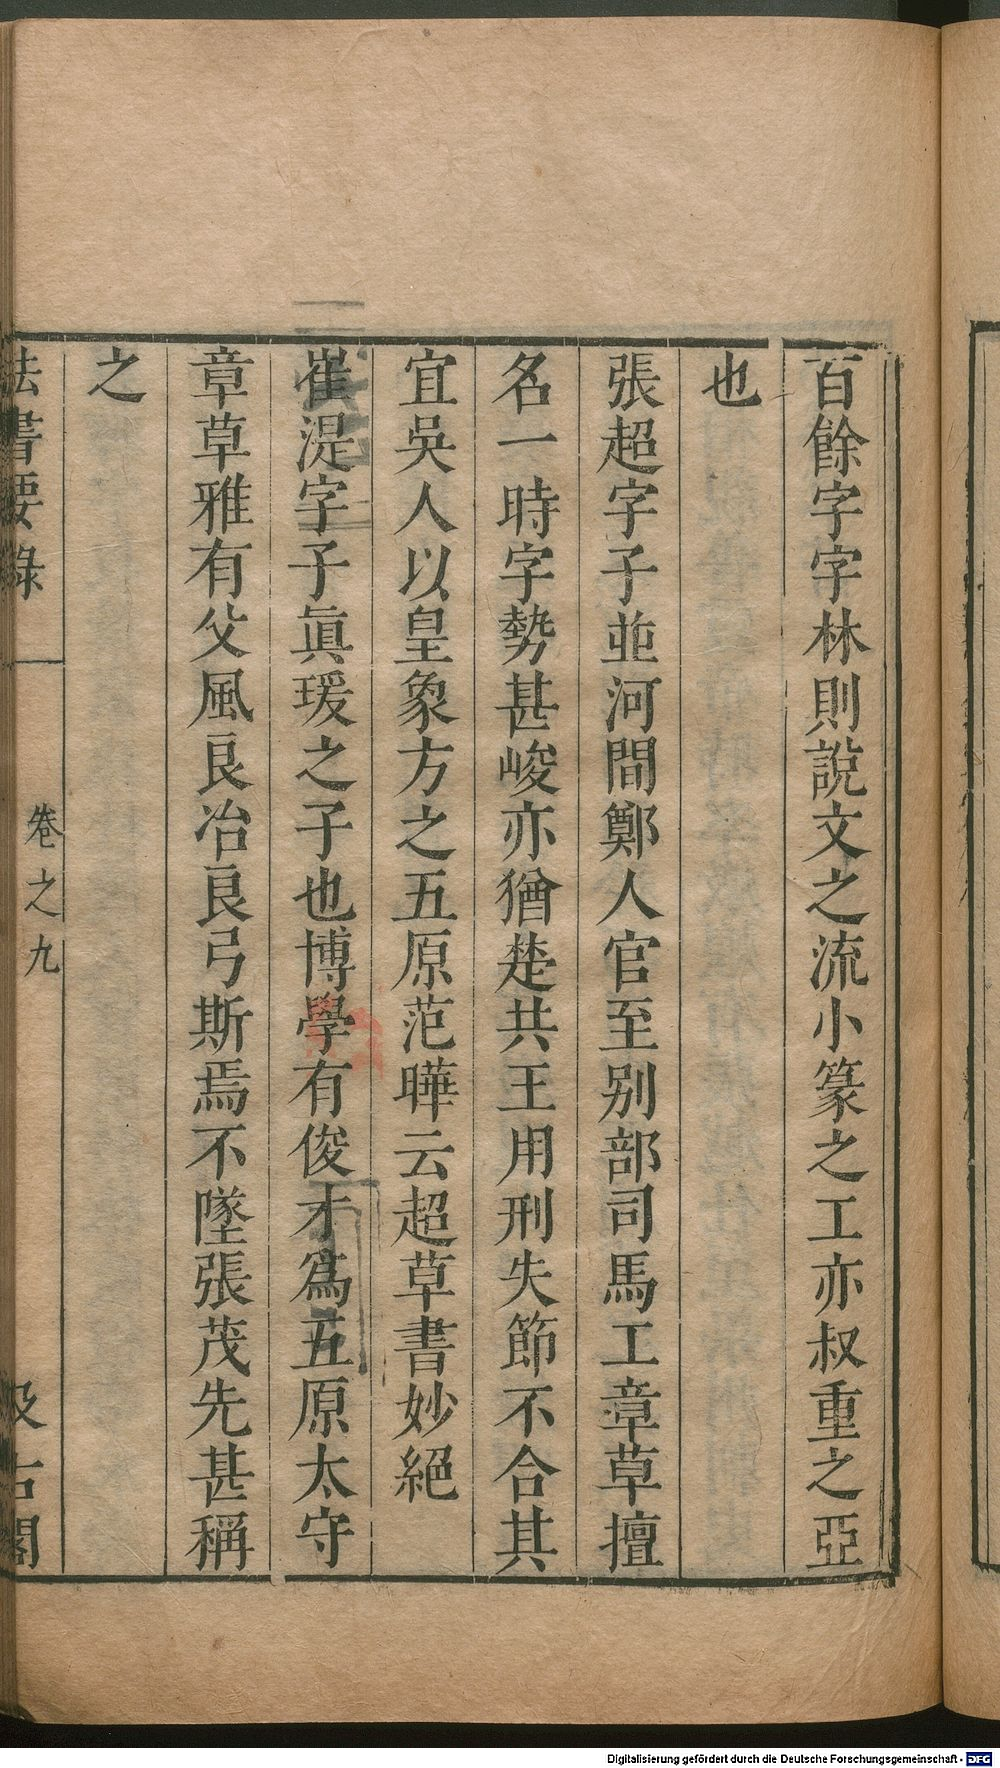 百餘字字林則說文之流小篆之工亦叔重之亞
也
張超字子並河間鄭人官至别部司馬工章草擅
名一時字勢甚峻亦猶楚共王用刑失節不合其
宜吳人以皇象方之五原范曄云超草書妙絕
崔湜字子眞瑗之子也博學有俊才爲五原太守
章草雅有父風良冶良弓斯焉不墜張茂先甚稱
之
法書要錄
卷之九
汲古閣
Digitalisierung gefördert durch die Deutsche Forschungsgemeinschaft - DFG